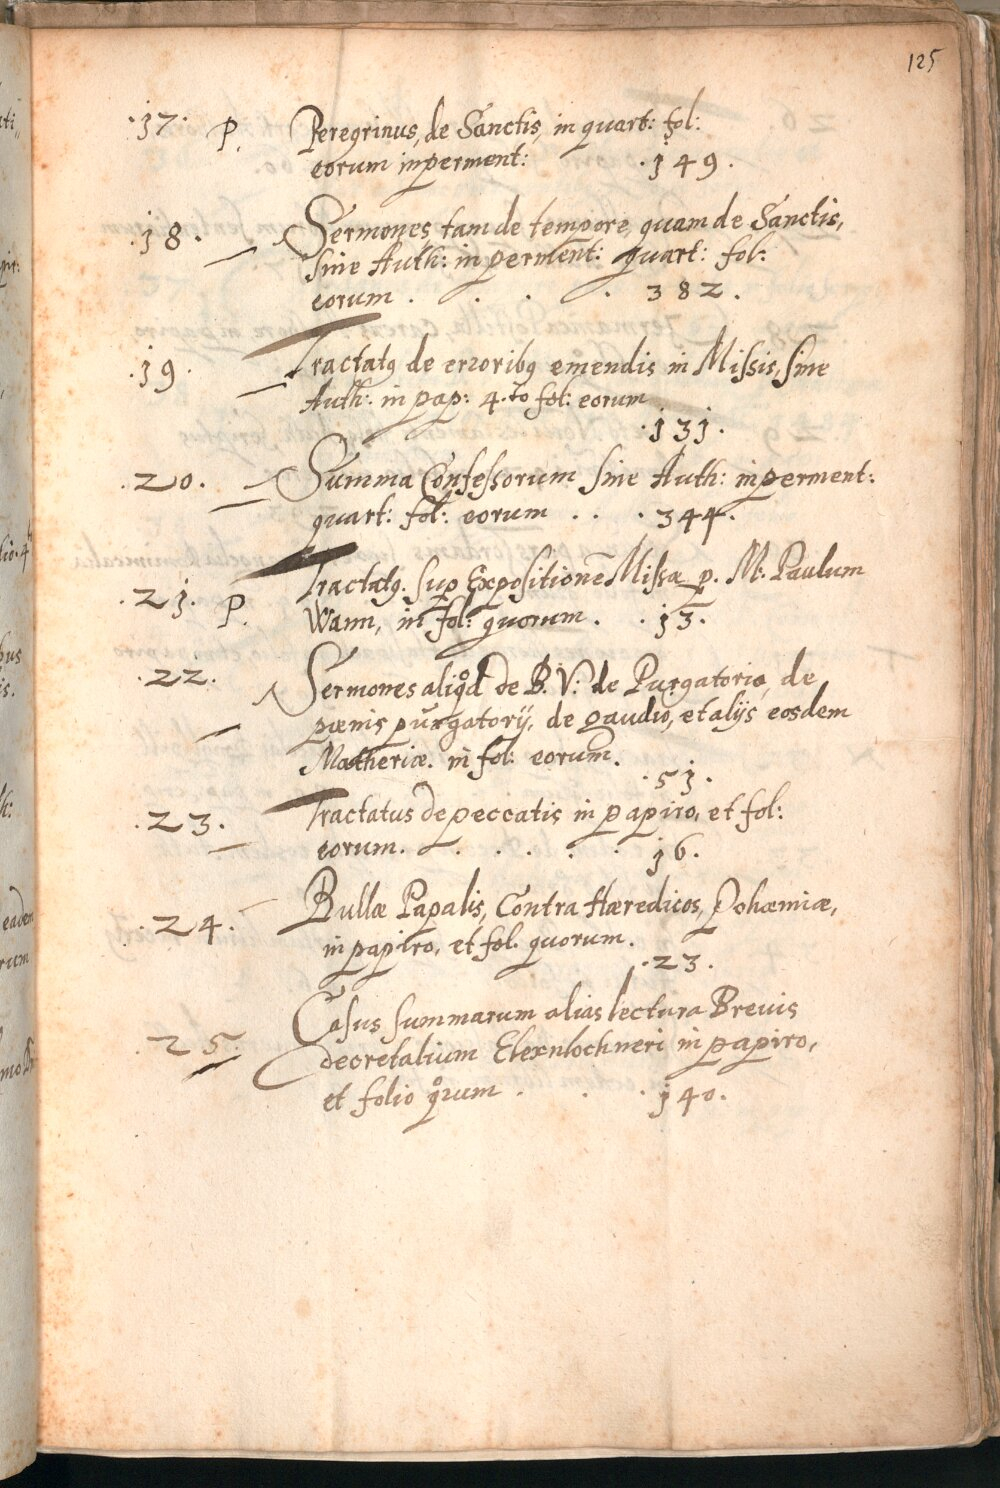 125
.17. P. Peregrinus, de Sanctis, in quart: fol:
eorum in perment: .149.
.18. Sermones tam de tempore, quam de Sanctis,
sine Auth: in perment: quart: fol:
eorum . . . . 382.
.19. Tractatꝯ de erroribꝯ emendis in Missis, sine
Auth: in pap: 4.to fol: eorum
.131.
.20. Summa Confessorum sine Auth: in perment:
quart: fol: eorum . . . 344.
.21. P. Tractatꝯ. sup Expositionē Missæ p. M. Paulum
Wann, in fol: quorum . . 13.
.22. Sermones aliqd de B. V: de Purgatorio, de
pœnis purgatorij, de gaudio, et alijs eosdem
Matheriæ. in fol: eorum.
.51.
.23. Tractatus de peccatis in papiro, et fol:
eorum. . . . . . 16.
.24. Bullæ Papalis, Contra Hæredicos, Pohæmiæ,
in papiro, et fol. quorum.
.23.
.25. Casus summarum alias lectura Breuis
decretalium in papiro,
et folio qrum . . . 140.